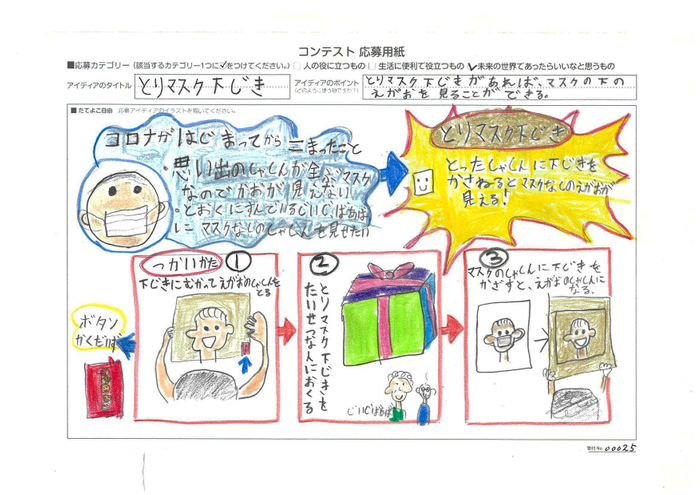 コンテスト 応募用紙
■応募カテゴリー（該当するカテゴリー1つに✓をつけてください。） □ 人の役に立つもの □ 生活に便利で役立つもの ✓ 未来の世界であったらいいなと思うもの
アイディアのタイトル
とりマスク下じき
アイディアのポイント
とりマスク下じきがあれば、マスクの下の
えがおを見ることができる。
■たてよこ自由 応募アイディアのイラストを描いてください。
コロナがはじまってから こまったこと
・思い出のしゃしんが全ぶマスク
なのでかおが見えない
・とおくにすんでいるじいじばあば
に マスクなしのしゃしんを見せたい
とりマスク下じき
とったしゃしんに下じきを
かさねるとマスクなしのえがおが
見える!
つかいかた ①
下じきにむかってえがおのしゃしんを
とる
ボタン
かくだいず
②
とりマスク下じきを
たいせつな人におくる
じいじばあば
③
マスクのしゃしんに下じきを
かざすと、えがおのしゃしんに
なる。
受付No. 00025